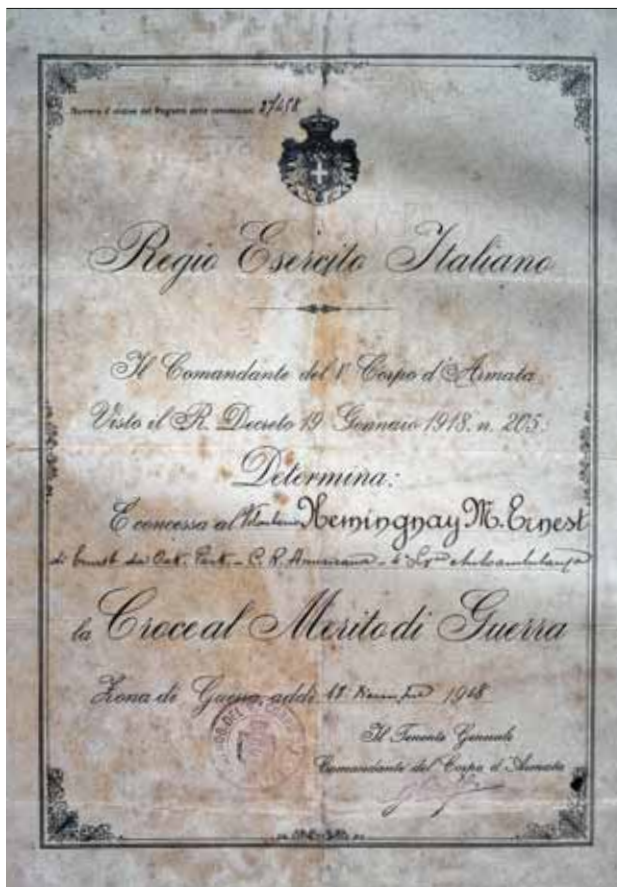 Numero d'ordine del Registro delle concessioni 27458
Regio Esercito Italiano
Il Comandante del 1º Corpo d'Armata
Visto il R. Decreto 19 Gennaio 1918. n. 205:
Determina:
È concessa al Volontario Hemingnay M. Ernest
di Ernest da Oak. Park. - C. R. Americana - 4ª Autoambulanza
la Croce al Merito di Guerra
Zona di Guerra, addì 1918
Il Tenente Generale
Comandante del Corpo d'Armata